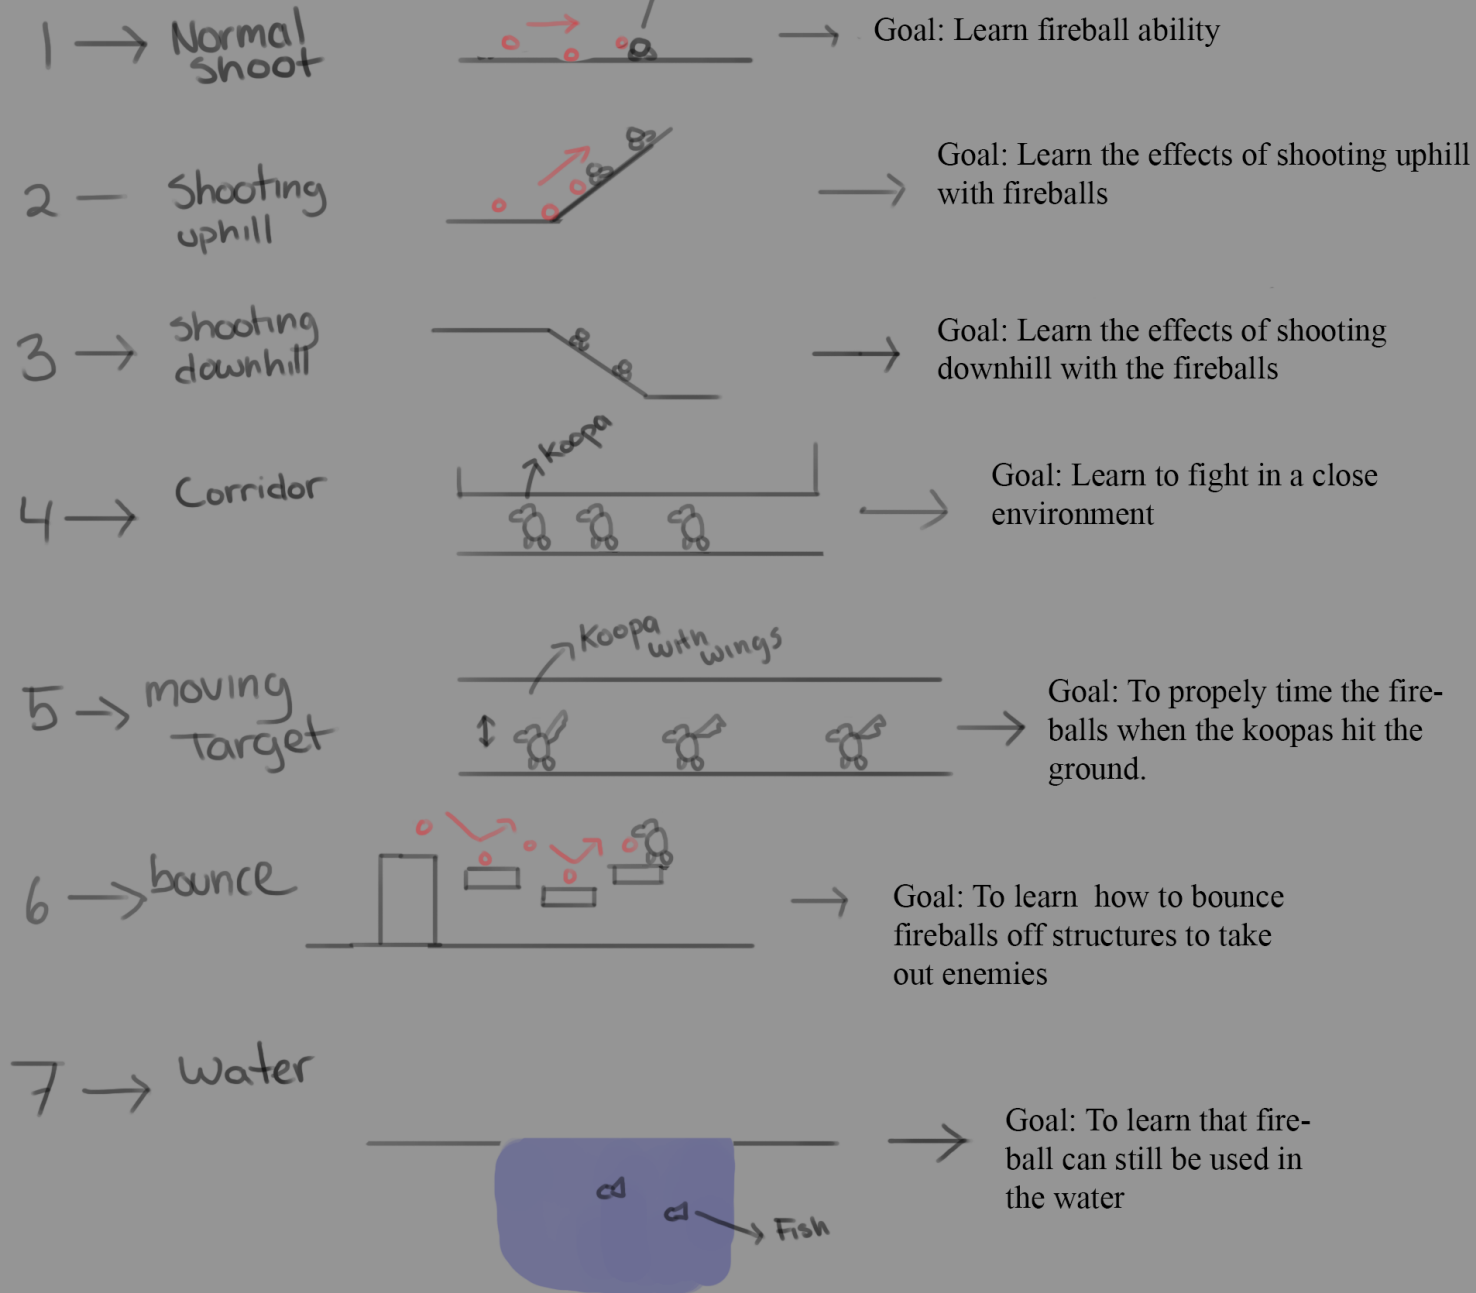 1 → Normal
shoot
→ Goal: Learn fireball ability
2 — Shooting
uphill
→ Goal: Learn the effects of shooting uphill
with fireballs
3 → shooting
downhill
→ Goal: Learn the effects of shooting
downhill with the fireballs
Koopa
4 → Corridor
→ Goal: Learn to fight in a close
environment
Koopa
with
wings
5 → moving
Target
→ Goal: To propely time the fire-
balls when the koopas hit the
ground.
6 → bounce
→ Goal: To learn how to bounce
fireballs off structures to take
out enemies
7 → water
→ Goal: To learn that fire-
ball can still be used in
the water
Fish